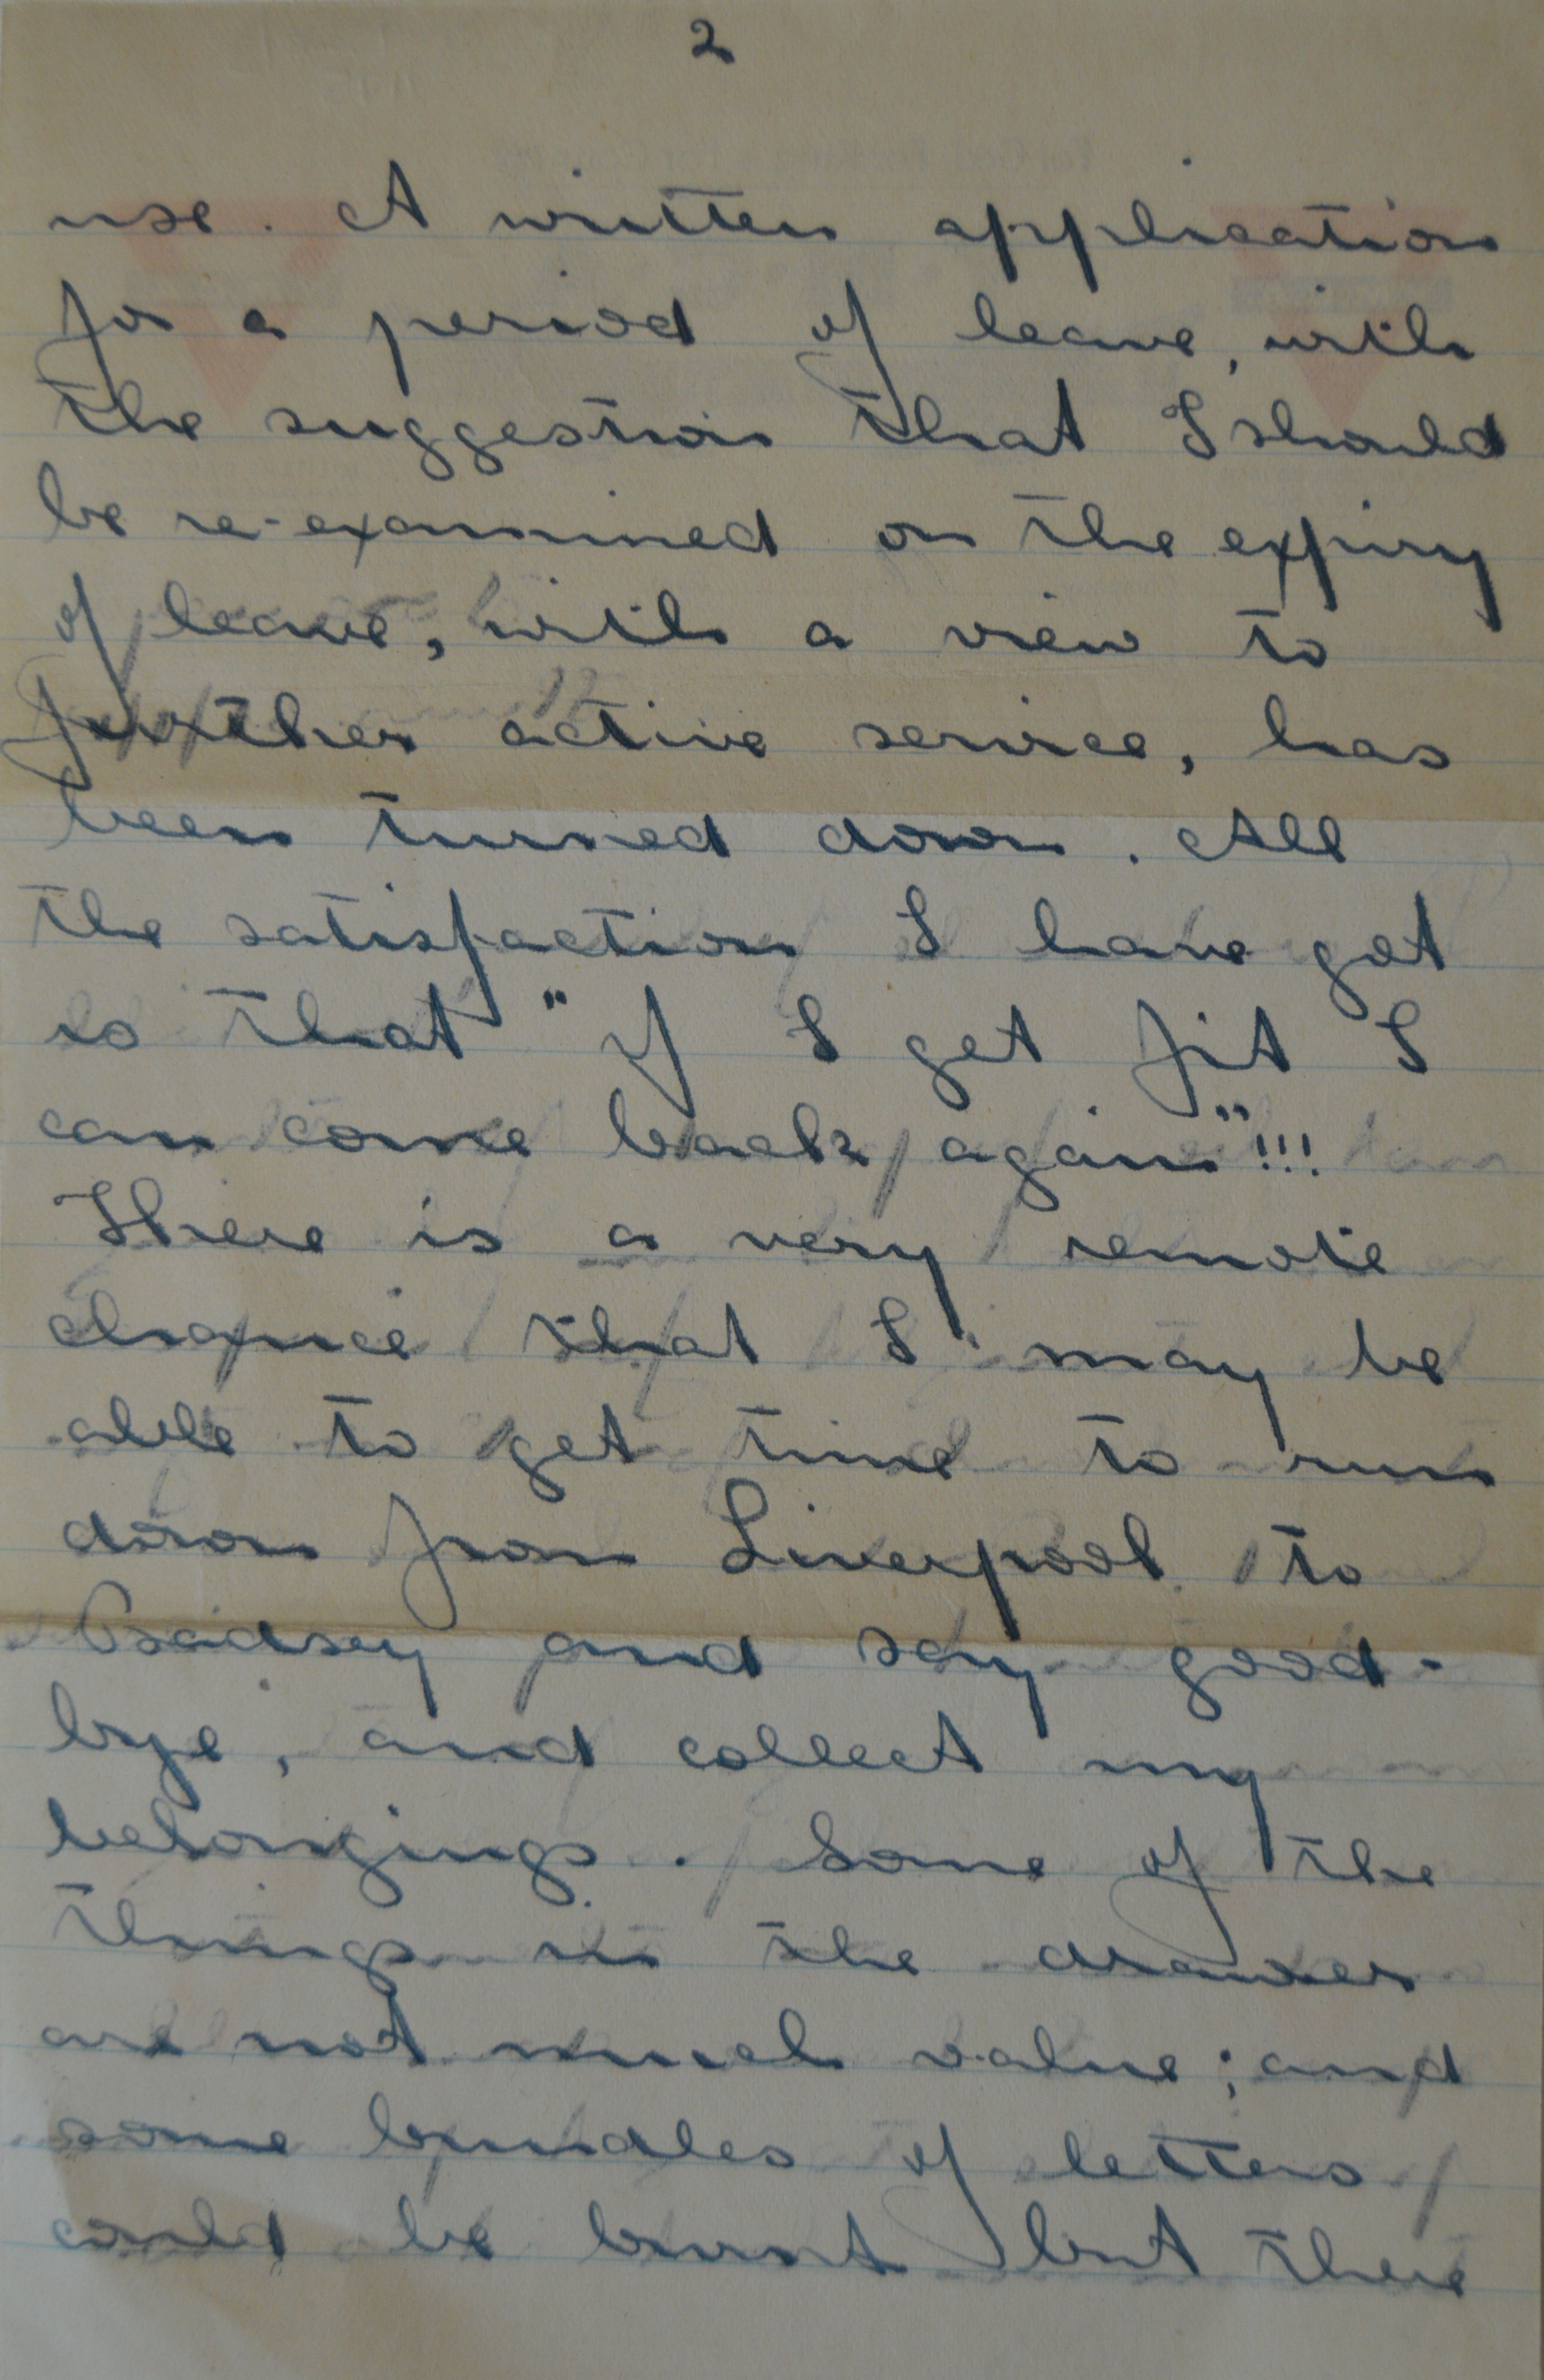 2
use. A written application
for a period of leave, with
the suggestion that I should
be re-examined on the expiry
of leave, with a view to
further active service, has
been turned down. All
the satisfaction I have got
is that "if I get fit I
can come back again"!!!
There is a very remote
chance that I may be
able to get time to run
down from Liverpool to
Badsey and say good-
bye, and collect my
belongings. Some of the
things in the drawer
are not much value; and
some bundles of letters
could be burnt but there